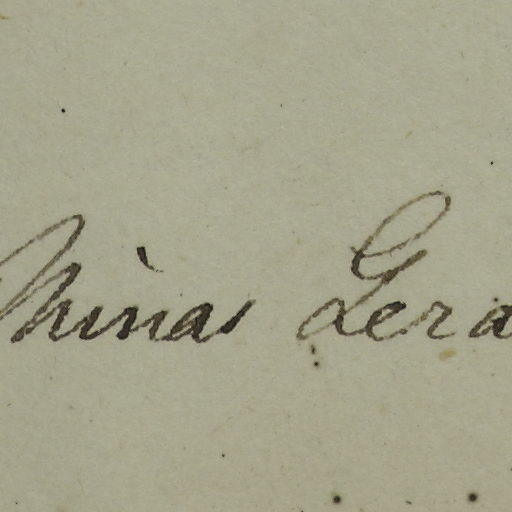 Minas Gera